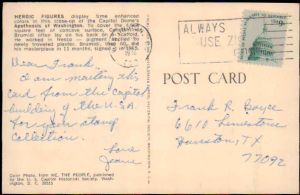 HEROIC FIGURES display time enhanced
colors in this close-up of the Capitol Dome's
Apotheosis of Washington. To cover the 4,664
square feet of concave surface, Constantino
Brumidi often lay on his back on a scaffold.
He worked in fresco — pigment applied to
newly troweled plaster. Brumidi, then 60, did
his masterpiece in 11 months, signed in 1865.
ALWAYS
USE ZIP
Dear Frank,
I am mailing this
card from the capitol
building of the U.S.A.
for your
collection.
Love
Jeane
POST CARD
Frank R. Boyce
6610 Limestone
Houston, TX
77092
Color Photo, from WE, THE PEOPLE, published
by the U. S. Capitol Historical Society, Wash-
ington, D. C. 20515